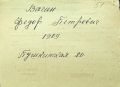 Вагин
Федор Петрович
1909
Пушкинская 20